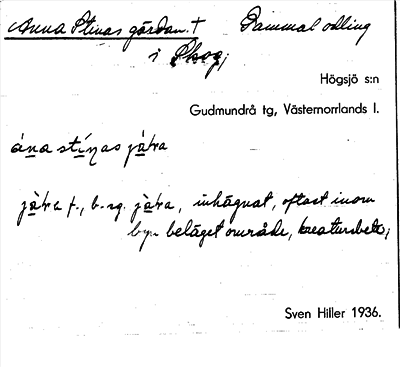 Anna Stinas gärdan † Gammal odling
i Skog;
Högsjö s:n
Gudmundrå tg, Västernorrlands l.
ána stínas jàtra
jàtra f., b. sg. jàtra, inhägnat, oftast inom
byn beläget område, kreatursbete;
Sven Hiller 1936.